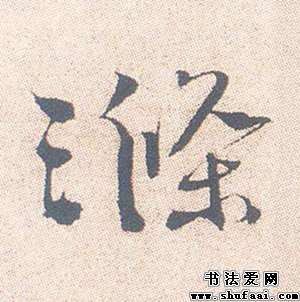 滌
书法爱网
www.shufaai.com